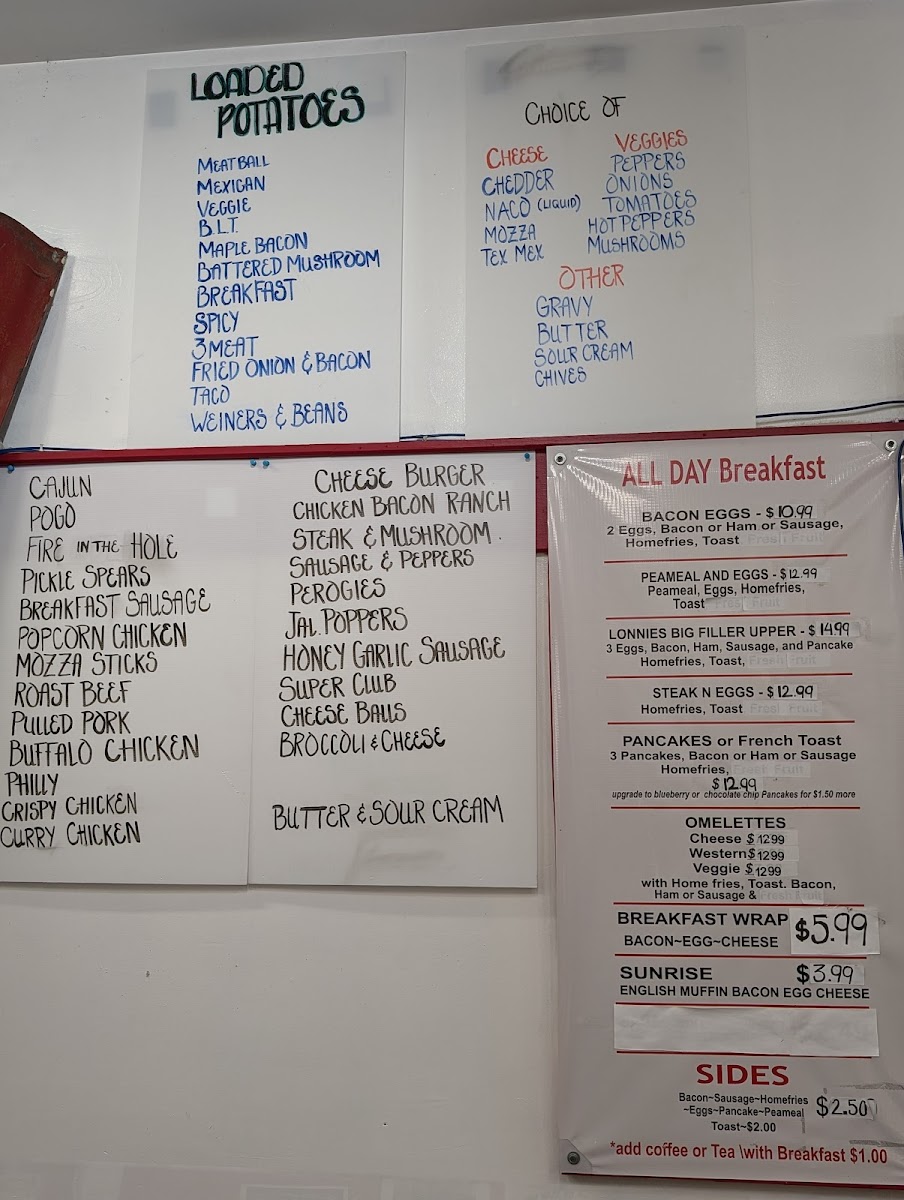 LOADED
POTATOES
MEATBALL
MEXICAN
VEGGIE
B.L.T.
MAPLE BACON
BATTERED MUSHROOM
BREAKFAST
SPICY
3MEAT
FRIED ONION & BACON
TACO
WEINERS & BEANS
CHOICE OF
CHEESE
CHEDDER
NACO (LIQUID)
MOZZA
TEX MEX
VEGGIES
PEPPERS
ONIONS
TOMATOES
HOT PEPPERS
MUSHROOMS
OTHER
GRAVY
BUTTER
SOUR CREAM
CHIVES
CAJUN
POGO
FIRE IN THE HOLE
PICKLE SPEARS
BREAKFAST SAUSAGE
POPCORN CHICKEN
MOZZA STICKS
ROAST BEEF
PULLED PORK
BUFFALO CHICKEN
PHILLY
CRISPY CHICKEN
CURRY CHICKEN
CHEESE BURGER
CHICKEN BACON RANCH
STEAK & MUSHROOM
SAUSAGE & PEPPERS
PEROGIES
JAL. POPPERS
HONEY GARLIC SAUSAGE
SUPER CLUB
CHEESE BALLS
BROCCOLI & CHEESE
BUTTER & SOUR CREAM
ALL DAY Breakfast
BACON EGGS - $10.99
2 Eggs, Bacon or Ham or Sausage,
Homefries, Toast Fresh Fruit
PEAMEAL AND EGGS - $12.99
Peameal, Eggs, Homefries,
Toast Fresh Fruit
LONNIES BIG FILLER UPPER - $14.99
3 Eggs, Bacon, Ham, Sausage, and Pancake
Homefries, Toast, Fresh Fruit
STEAK N EGGS - $12.99
Homefries, Toast Fresh Fruit
PANCAKES or French Toast
3 Pancakes, Bacon or Ham or Sausage
Homefries, Fresh Fruit
$12.99
upgrade to blueberry or chocolate chip Pancakes for $1.50 more
OMELETTES
Cheese $1299
Western $1299
Veggie $1299
with Home fries, Toast. Bacon,
Ham or Sausage & Fresh Fruit
BREAKFAST WRAP $5.99
BACON~EGG~CHEESE
SUNRISE $3.99
ENGLISH MUFFIN BACON EGG CHEESE
SIDES
Bacon~Sausage~Homefries
~Eggs~Pancake~Peameal $2.50
Toast~$2.00
*add coffee or Tea \with Breakfast $1.00